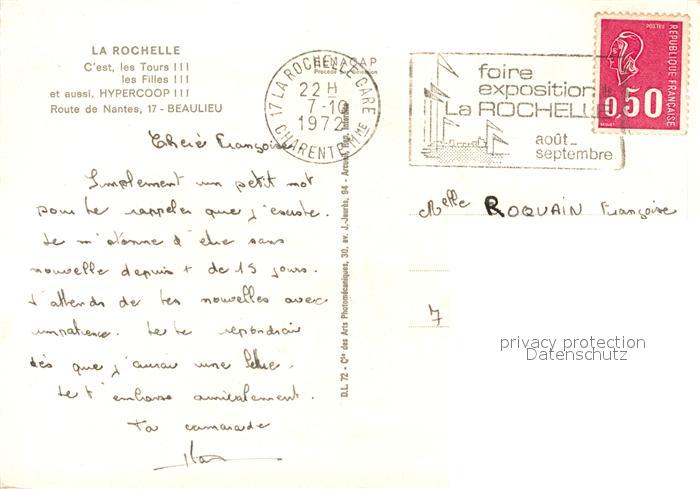 LA ROCHELLE
C'est, les Tours !!!
les Filles !!!
et aussi, HYPERCOOP !!!
Route de Nantes, 17 - BEAULIEU
17 LA ROCHELLE GARE
22 H
7-10
1972
CHARENTE Mme
foire
exposition
La ROCHELLE
août_
septembre
POSTES
REPUBLIQUE FRANÇAISE
0,50
Chère Françoise
Simplement un petit mot
pour te rappeler que j'existe.
Je m'étonne d'être sans
nouvelle depuis + de 15 jours.
J'attends de tes nouvelles avec
impatience. Je te répondrai
dès que j'aurai une lettre.
Je t'embrasse amicalement.
Ta camarade
D.L. 72 - Cie des Arts Photomécaniques, 30, av. J.-Jaurès, 94 - Arcueil
Melle ROQUAIN Françoise
7
privacy protection
Datenschutz